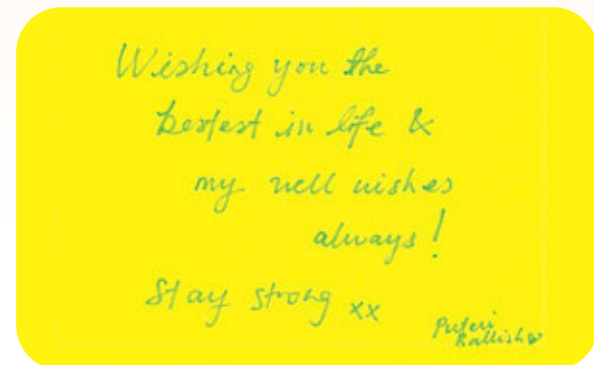 Wishing you the
bestest in life &
my well wishes
always!
Stay strong xx
Puteri
Balkish